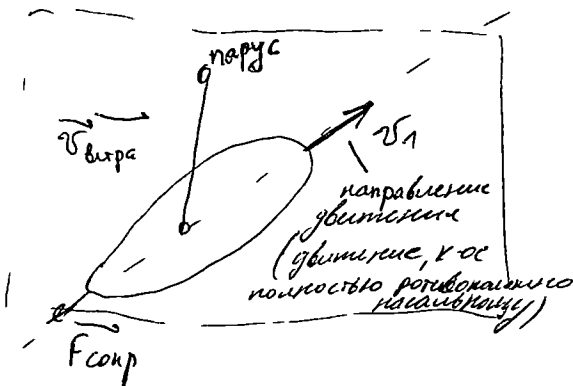 парус
v ветра
v₁
направление
движения
(движение, к-ое
полностью
начальному)
Fсопр